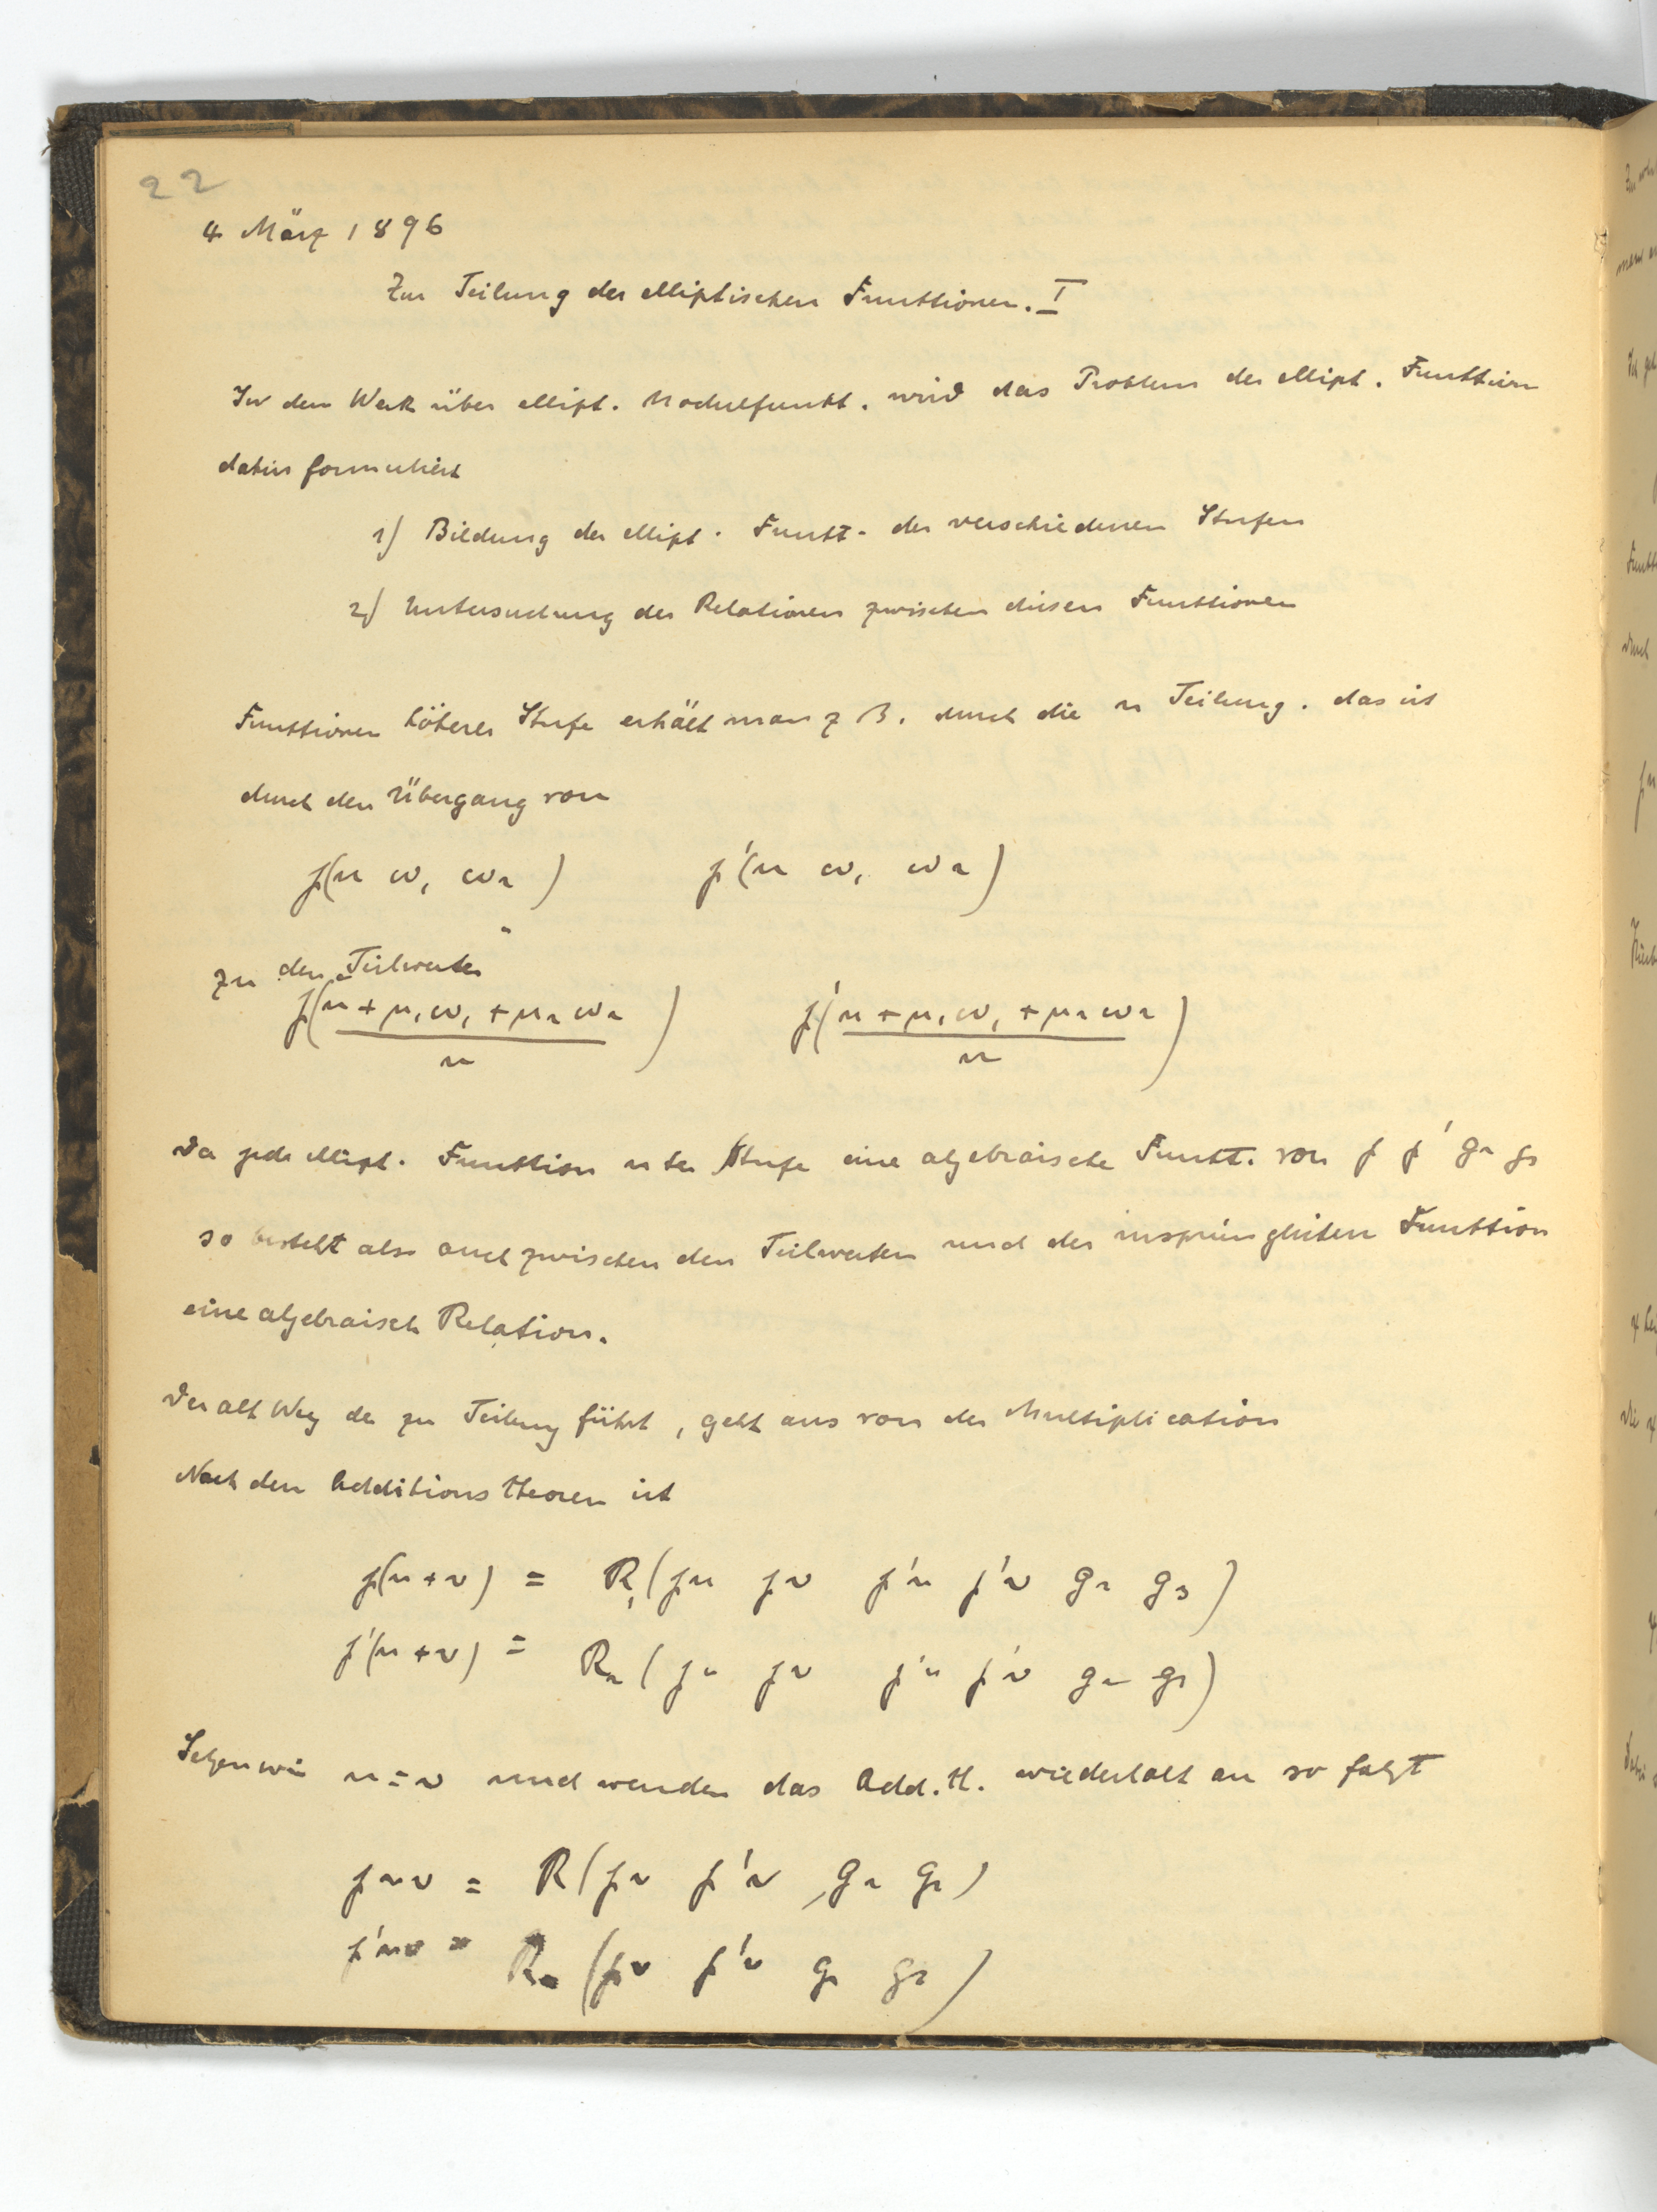 22
4 März 1896
Zur Teilung der elliptischen Functionen. I
In dem Werk über ellipt. Modulfunkt. wird das Problem der ellipt. Function
dahin formuliert
1) Bildung der ellipt. Funkt. der verschiedenen Stufen
2) Untersuchung der Relationen zwischen diesen Functionen
Functionen höherer Stufe erhält man z B. durch die n Teilung. das ist
durch den Übergang von
℘(u ω₁ ω₂) ℘'(u ω₁ ω₂)
zu den Teilwerten
℘(u + μ₁ω₁ + μ₂ω₂ / n) ℘'(u + μ₁ω₁ + μ₂ω₂ / n)
Da jede ellipt. Function n ter Stufe eine algebraische Funkt. von ℘ ℘' g₂ g₃
so besteht also auch zwischen den Teilwerten und der ursprünglichen Function
eine algebraisch Relation.
Der alt Weg der zur Teilung führt, geht aus von der Multiplication
Nach dem Additions theorem ist
℘(u + v) = R₁(℘u ℘v ℘'u ℘'v g₂ g₃)
℘'(u + v) = R₂(℘u ℘v ℘'u ℘'v g₂ g₃)
Setzen wir u = v und wenden das Add. th. wiederholt an so folgt
℘nv = R(℘v ℘'v, g₂ g₃)
℘'nv = R₂(℘v ℘'v g₂ g₃)